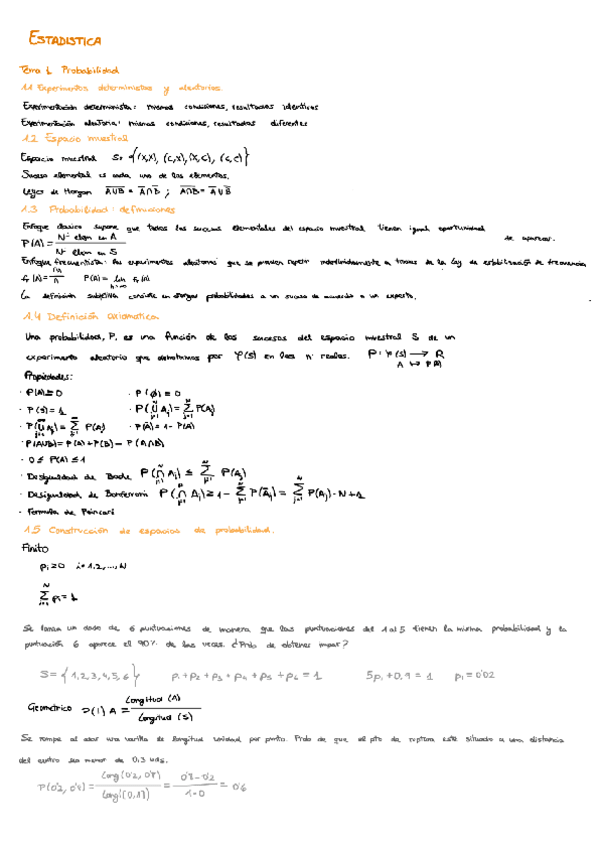 ESTADISTICA
Tema 1. Probabilidad
1.1 Experimentos deterministas y aleatorios
Experimentación determinista: mismas condiciones, resultados identicos
Experimentación aleatoria: mismas condiciones, resultados diferentes
1.2 Espacio muestral
Espacio muestral S = {(x,x), (c,x), (x,c), (c,c)}
Suceso elemental es cada uno de los elementos.
Leyes de Morgan A̅U̅B̅ = A̅∩B̅ ; A̅∩̅B̅ = A̅UB̅
1.3 Probabilidad: definiciones
Enfoque clasico supone que todos los sucesos elementales del espacio muestral tienen igual oportunidad de aparecer.
P(A) = Nº elem en A / Nº elem en S
Enfoque frecuentista: los experimentos aleatorios que se pueden repetir indefinidamente a traves de la ley de estabilización de frecuencia
fr(A) = nA / n P(A) = lim n→∞ fr(A)
La definición subjetiva consiste en otorgar probabilidades a un suceso de acuerdo a un experto.
1.4 Definición axiomatica
Una probabilidad, P, es una función de los sucesos del espacio muestral S de un
experimento aleatorio que denotamos por φ(S) en los nº reales. P: φ(S) → R
A → P(A)
Propiedades:
· P(A) ≥ 0 · P(∅) = 0
· P(S) = 1 · P(U Aj) = Σ P(Aj)
· P(U Aj) = Σ P(Aj) · P(A̅) = 1 - P(A)
· P(AUB) = P(A) + P(B) - P(A∩B)
· 0 ≤ P(A) ≤ 1
· Desigualdad de Boole P(∩ Aj) ≤ Σ P(Aj)
· Desigualdad de Bonferroni P(∩ Aj) ≥ 1 - Σ P(A̅j) = Σ P(Aj) - N + 1
· Formula de Poincaré
1.5 Construcción de espacios de probabilidad.
Finito
pi ≥ 0 i = 1, 2, ..., N
Σ pi = 1
Se lanza un dado de 6 puntuaciones de manera que las puntuaciones del 1 al 5 tienen la misma probabilidad y la
puntuación 6 aparece el 90% de las veces. ¿Prob de obtener impar?
S = {1, 2, 3, 4, 5, 6} p1 + p2 + p3 + p4 + p5 + p6 = 1 5p1 + 0,9 = 1 p1 = 0'02
Geométrico P(A) = Longitud (A) / Longitud (S)
Se rompe al azar una varilla de longitud unidad por punto. Prob de que el pto de ruptura esté situado a una distancia
del centro sea menor de 0,3 uds.
P(0'2, 0'8) = Long(0'2, 0'8) / Long(0,1) = 0'8-0'2 / 1-0 = 0'6